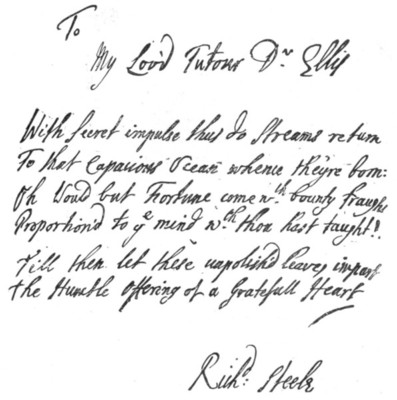 To
My Lov'd Tutour Dr Ellis
With secret impulse thus do Streams return
To that Capacious Ocean whence they're born:
Oh Woud but Fortune come wth bounty fraught
Proportion'd to ye mind wch thou hast taught!
Till then let these unpolish'd leaves impart
the Humble Offering of a Gratefull Heart
Richd Steele